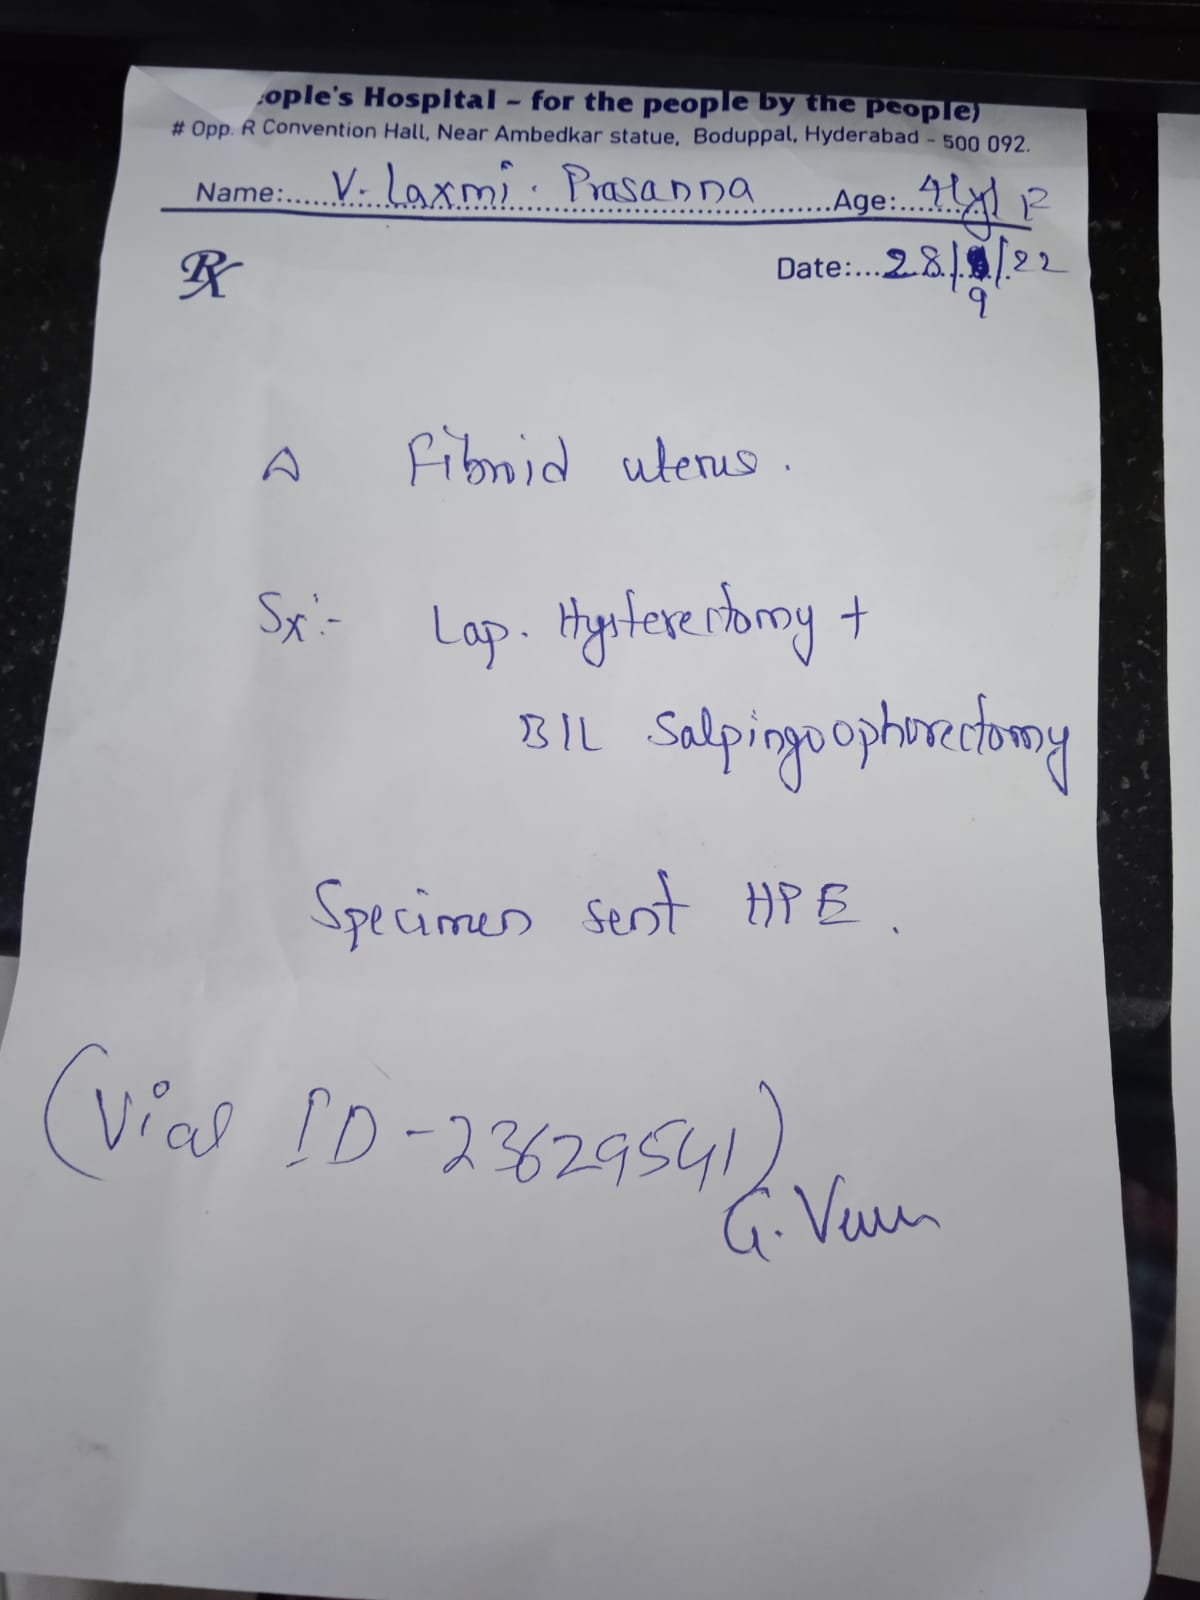 ople's Hospital - for the people by the people)
# Opp. R Convention Hall, Near Ambedkar statue, Boduppal, Hyderabad - 500 092.
Name:..... V. Laxmi. Prasanna .....Age:... 41y/F
Rx
Date:...28/9/22
9
Δ Fibroid uterus.
Sx:- Lap. Hysterectomy +
B/L Salpingoophorectomy
Specimen sent HPE.
(Vial ID-23629541)
G.